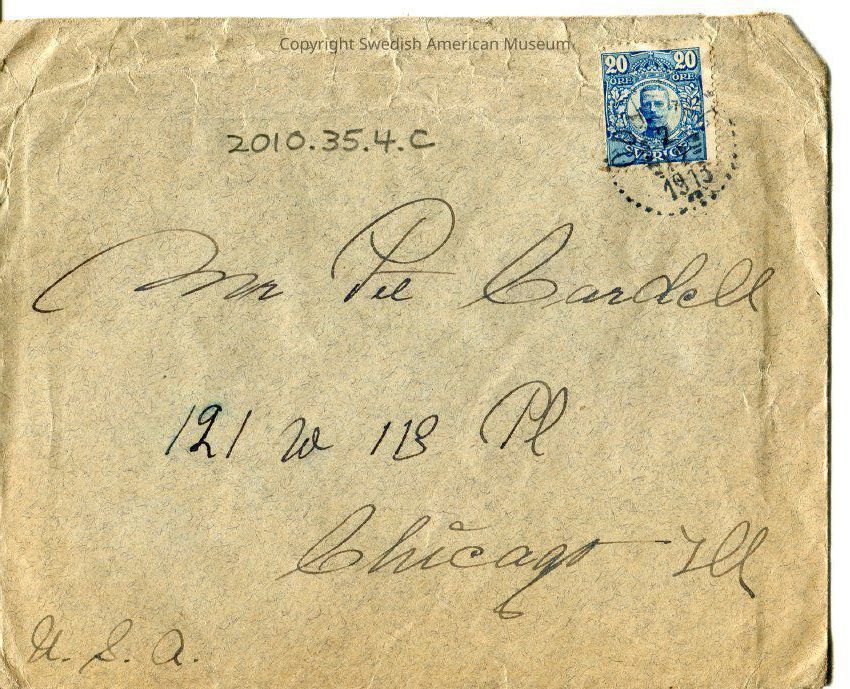 Copyright Swedish American Museum
20 20
ÖRE ÖRE
SVERIGE
1913
2010.35.4.C
Mr Pel Cardell
121 W 113 Pl
Chicago Ill
U. S. A.